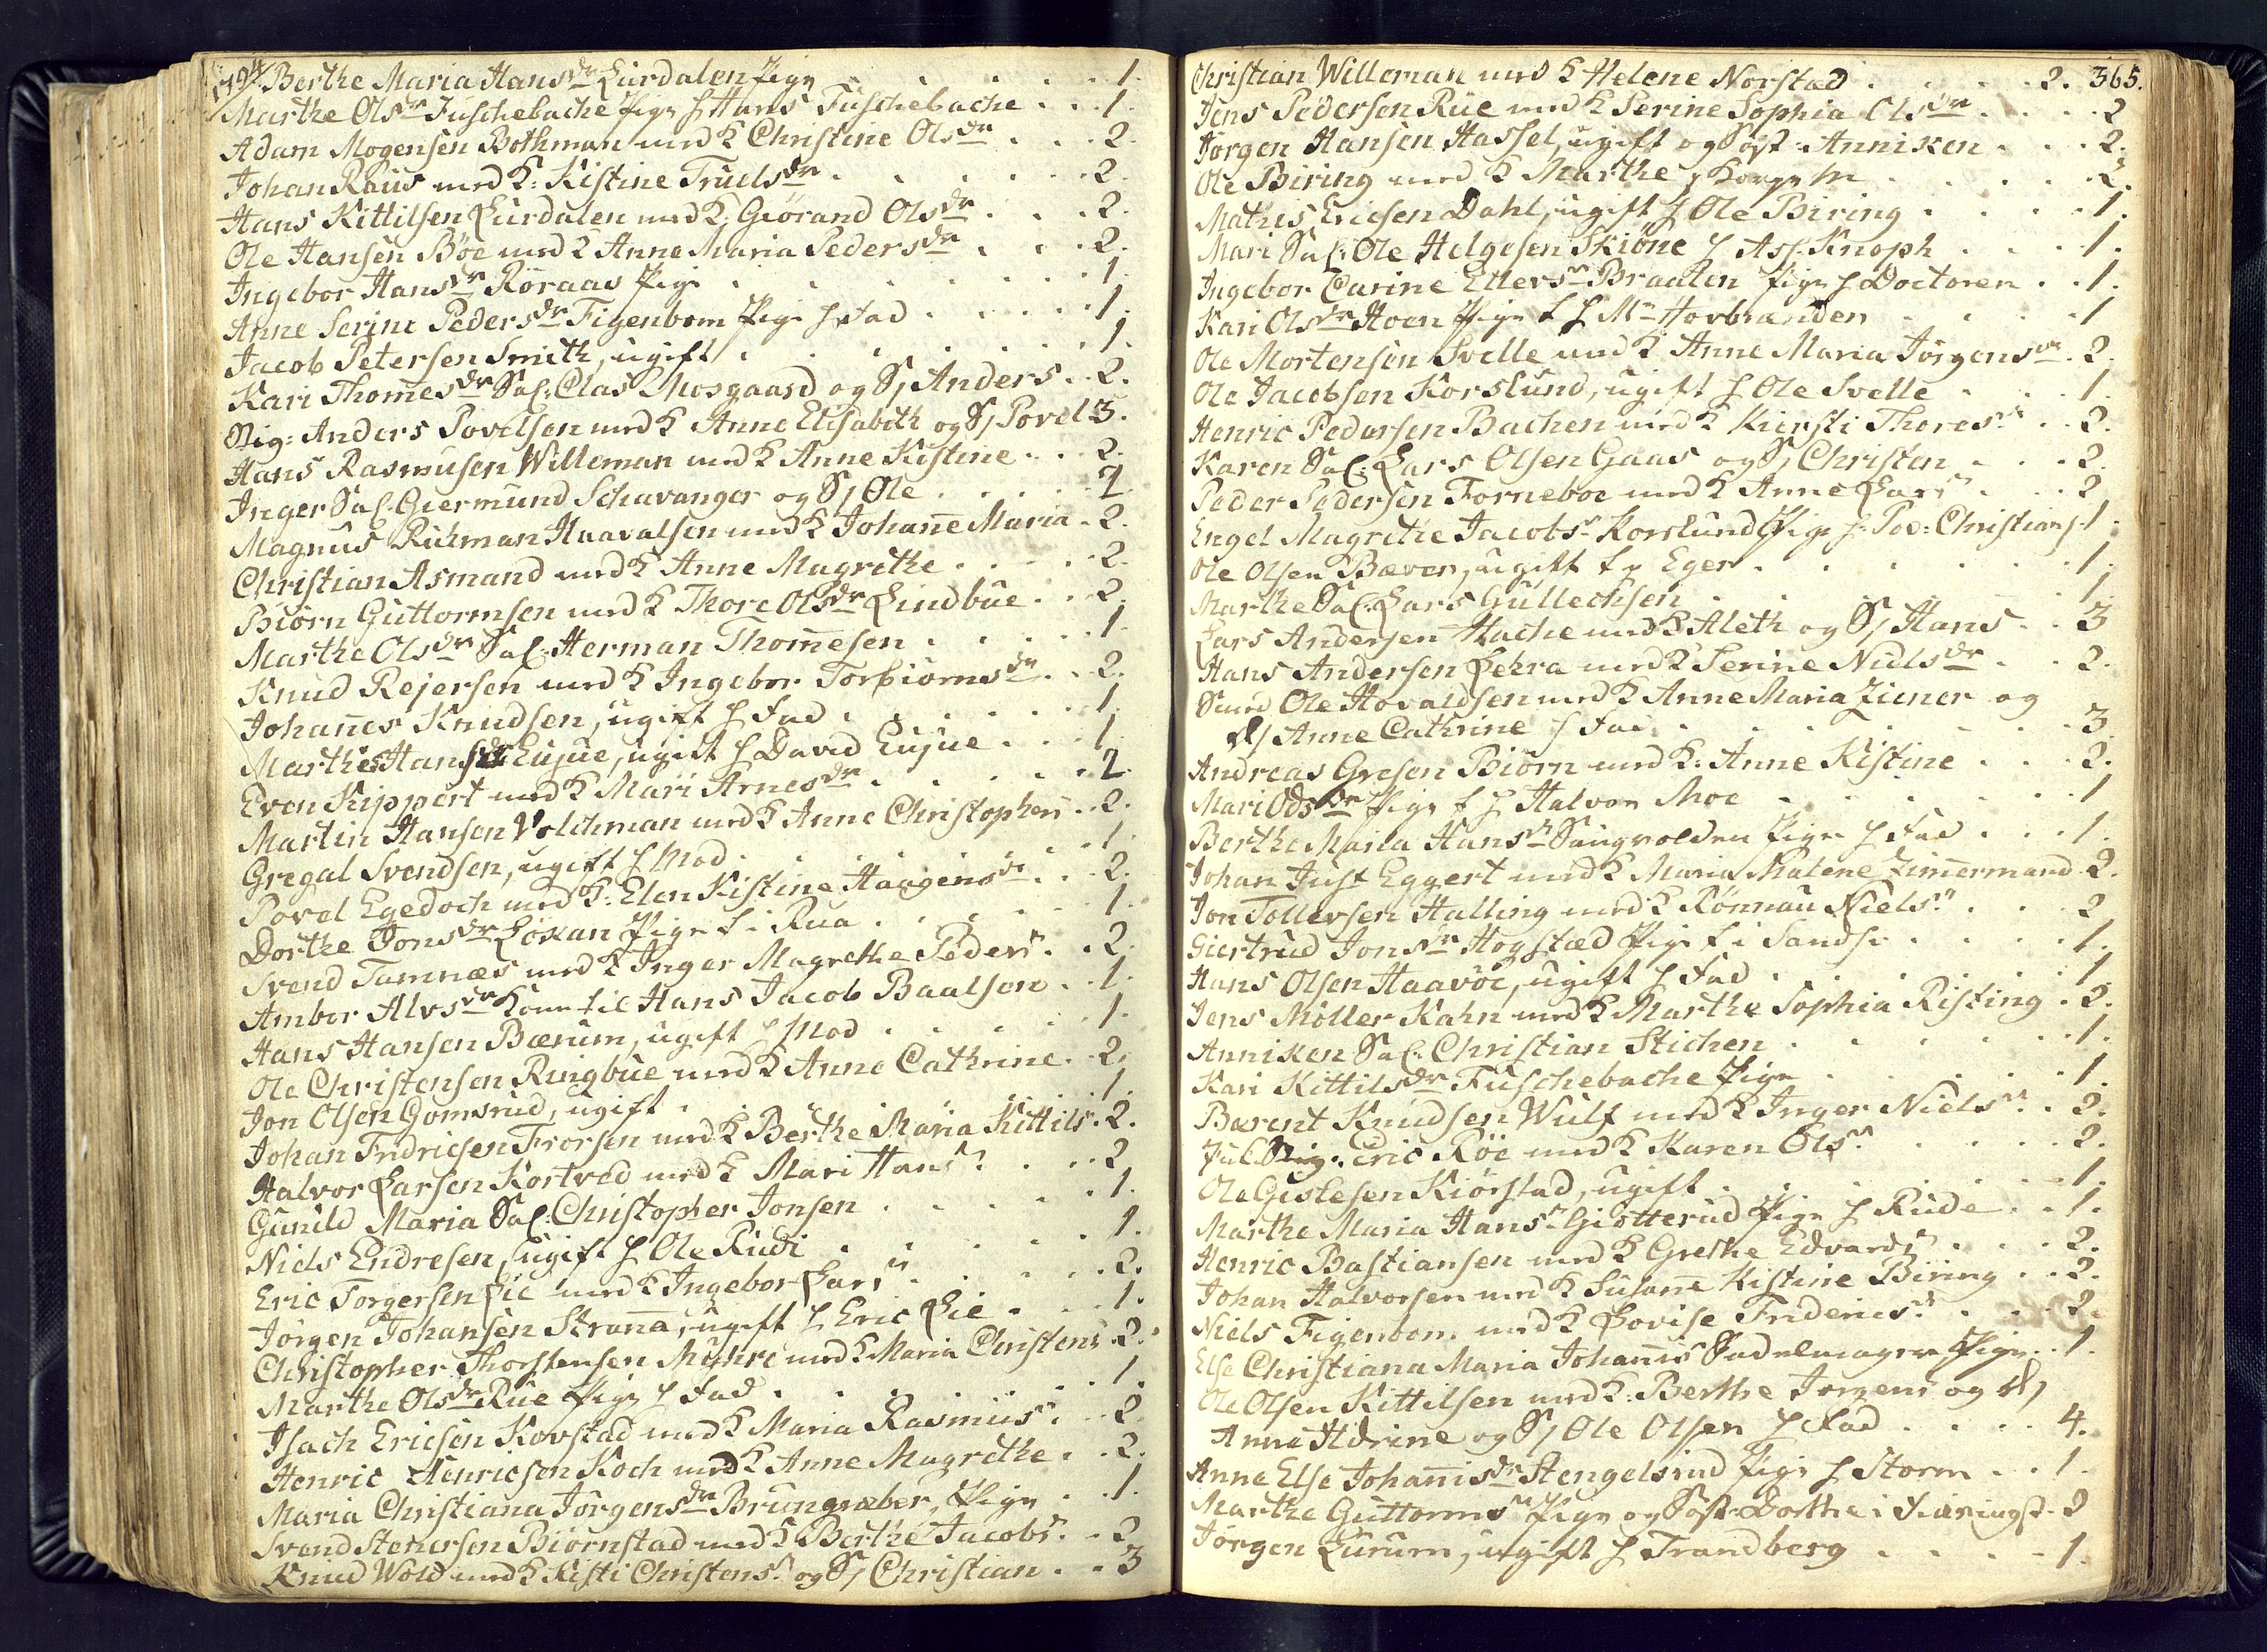 1794 Berthe Maria Hansdr Lurdalen Pige . . . . . . 1.
Marthe Olsdr Fuschebache Pige h Hans Fuschebache . . . 1.
Adam Mogensen Bothman med K Christine Olsdr . . . 2.
Johan Raus med K: Kistine Truelsdr . . . . . 2.
Hans Kittilsen Lurdalen med K: Giörand Olsdr . . . 2.
Ole Hansen Böe med K Anne Maria Pedersdr . . . 2.
Ingebor Hansdr Röraas Pige . . . . . . 1.
Anne Serine Pedersdr Figenbom Pige h Fad . . . . . 1.
Jacob Petersen Smith, ugift . . . . . . 1.
Kari Thomesdr Sal: Clas Mosgaard og S/ Anders . . 2.
Olig: Anders Povelsen med K Anne Elisabeth og S/ Povel 3.
Hans Rasmusen Willeman med K Anne Kistine . . . 2.
Inger Sal. Giermund Schavanger og S/ Ole . . . . . 2.
Magnus Richman Haavalsen med K Johanne Maria . 2.
Christian Asmand med K Anne Magrethe . . . . . 2.
Biörn Guttormsen med K Thore Olsdr Lindbüe . . . 2.
Marthe Olsdr Sal. Herman Thomesen . . . . . 1.
Knud Rejersen med K Ingebor Torbiörnsdr . . 2.
Johannes Knudsen, ugift h Fad . . . . . . 1.
Marthe Hansdr Eujue, ugift h David Eujue . . . 1.
Even Kippert med K Mari Arnesdr . . . . . 2.
Martin Hansen Volchman med K Anne Christophers . . 2.
Gregal Svendsen, ugift h Mod . . . . . . 1.
Povel Egedoch med K: Elen Kistine Haagensdr . . . 2.
Dorthe Jonsdr Löxan Pige t i Rua . . . . . . 1.
Svend Tamnæs med K Inger Magrethe Peders . . 2.
Ambor Alvsdr Kone til Hans Jacob Baalsen . . 1.
Hans Hansen Bærum, ugift h Mod . . . . . 1.
Ole Christensen Ringbüe med K Anne Cathrine . . 2.
Jon Olsen Gomsrud, ugift . . . . . . 1.
Johan Fridricsen Frorsen med K Berthe Maria Kittils . 2.
Halvor Larsen Kortved med K Mari Hans . . . 2.
Gunild Maria Sal: Christopher Jonsen . . . . . 1.
Niels Endresen, ugift h Ole Rudi . . . . . . 1.
Eric Torgersen Lie med K Ingebor Lars . . . . . 2.
Jörgen Johansen Stranna, ugift h Eric Lie . . . 1.
Christopher Thorstensen Muhre med K Maria Christens . 2.
Marthe Olsdr Rüe Pige h Fad . . . . . . 1.
Isach Ericsen Kovstad med K Maria Rasmus . . . 2.
Henric Henricsen Koch med K Anne Magrethe . . 2.
Maria Christiana Jörgensdr Brungræber, Pige . . 1.
Svend Stenersen Biörnstad med K Berthe Jacobs . . 2.
Knud Wold med K Kisti Christens og S/ Christian . . 3
Christian Willeman med K Helene Norstad . . . . . 2. 365.
Jens Pedersen Rüe med K Serine Sophia Olsdr . . . . 2
Jörgen Hansen Hassel, ugift og Söst: Anniken . . . 2.
Ole Biring med K Marthe . . . . . 2.
Mathis Ericsen Dahl, ugift h Ole Biring . . . . 1.
Mari Sal: Ole Helgesen Skiöne h Ass. Knoph . . . . 1.
Ingebor Carine Ellers Braaten Pige h Doctoren . . 1.
Kari Olsdr Hoen Pige t h Mr Horbranden . . . . . 1
Ole Mortensen Svelle med K Anne Maria Jörgensdr . 2.
Ole Jacobsen Korslund, ugift h Ole Svelle . . . . 1.
Henric Pedersen Bachen med K Kiersti Thores . . 2.
Karen Sal. Lars Olsen Gaas og S/ Christen . . . 2.
Peder Pedersen Forneboe med K Anne Lars . . . 2.
Engel Magrethe Jacobs Korslund Pige h: Poe: Christians . 1.
Ole Olsen Bæver, ugift t p Eger . . . . . . 1.
Marthe Sal. Lars Gullechsen . . . . . . 1.
Lars Andersen Hache med K Aleth og S/ Hans . . 3
Hans Andersen Lehra med K Serine Nielsdr . . 2.
Ole Hovaldsen med K Anne Maria Ziener og
D/ Anne Cathrine h Fad . . . . . . . 3.
Andreas Gresen Biörn med K: Anne Kistine . . . 2.
Mari Odsdr Pige t h Halvor Moe . . . . . . 1
Berthe Maria Hansdr Saugvolden Pige h Fad . . . 1.
Johan Just Eggert med K Maria Malene Zimmermand . 2.
Jon Tollevsen Halling med K Rönnau Niels . . . 2.
Giertrud Jonsdr Hogstad Pige t i Sands . . . . . 1.
Hans Olsen Haavöe, ugift h Fad . . . . . 1.
Jens Möller Kahn med K Marthe Sophia Risting . 2.
Anniken Sal: Christian Stichen . . . . . . 1.
Kari Kittilsdr Fuschebache Pige . . . . . . 1.
Barent Knudsen Wulf med K Inger Niels . . 2.
Eric Röe med K Karen Ols . . . . . 2.
Ole Geslesen Kiörstad, ugift . . . . . . 1.
Marthe Maria Hans Giötterud Pige h Rude . . 1.
Henric Bastiansen med K Grethe Edvards . . . 2.
Johan Halvorsen med K Susanne Kistine Biring . . 2.
Niels Figenbom med K Lovise Friderics . . . . 2.
Else Christiana Maria Johannis Sadelmager Pige . . 1.
Ole Olsen Kittilsen med K: Berthe Jörgens og D/
Anne Hdrine og S/ Ole Olsen h Fad . . . . . 4.
Anne Else Johannisdr Stengelsrud Pige h Storm . . . 1.
Marthe Guttorms Pige og Söst: Dorthe i . 2
Jörgen Lurum, ugift h Trandberg . . . . . 1.